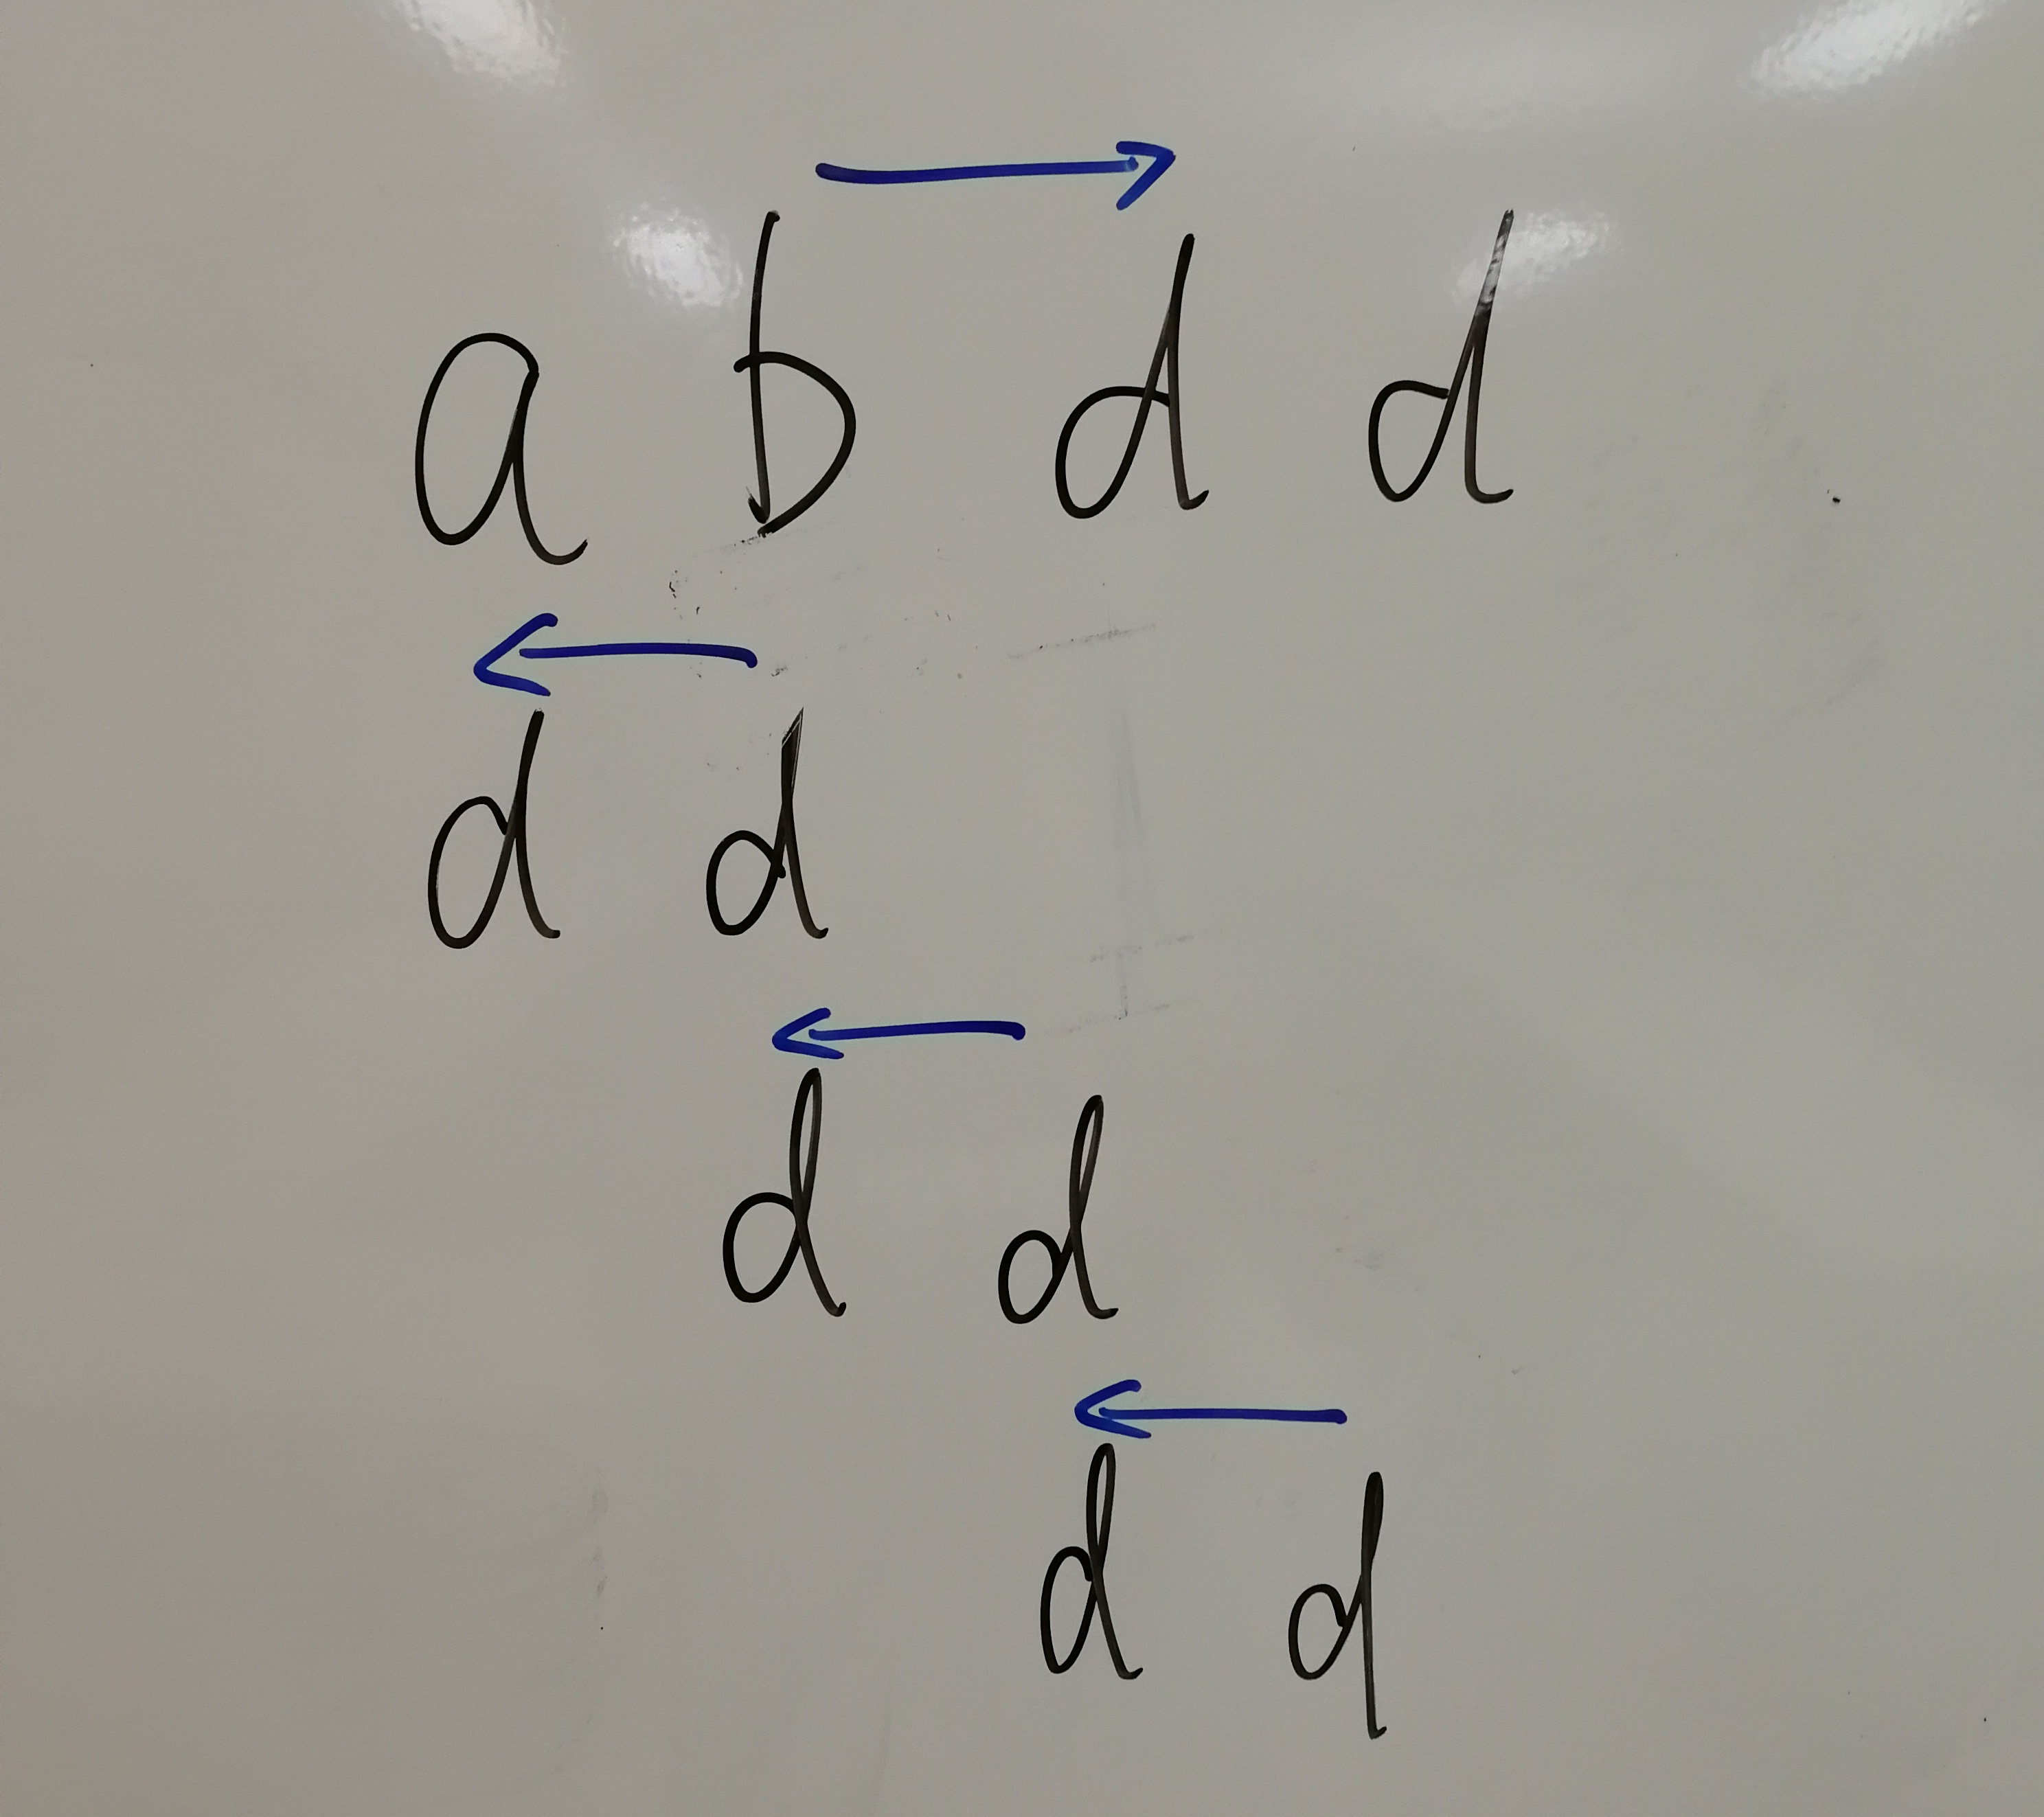 a b d d
d d
d d
d d